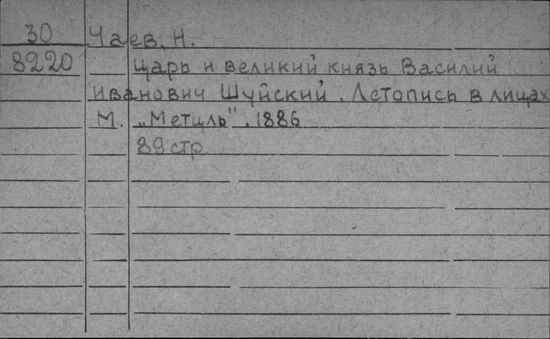 30 Чаев, Н.
8220 Царь и великий князь Василий
Иванович Шуйский. Летопись в лицах
М. „Метцль". 1886
89 стр